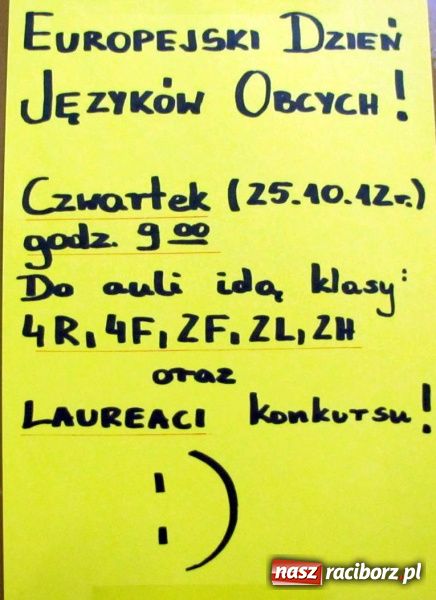 EUROPEJSKI DZIEŃ
JĘZYKÓW OBCYCH!
Czwartek (25.10.12r.)
godz. 9 00
Do auli idą klasy:
4R, 4F, 2F, 2L, 2H
oraz
LAUREACI konkursu!
:)
nasz raciborz.pl